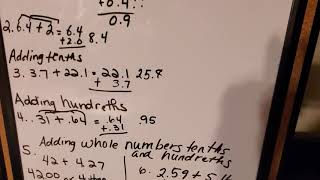 +0.4
0.9
2. 6.4 + 2 = 6.4
+2.0 8.4
Adding tenths
3. 3.7 + 22.1 = 22.1 25.8
+ 3.7
Adding hundreths
4. .31 + .64 = .64 .95
+.31
Adding whole numbers tenths
and hundreths
5. 42 + 4.27
6. 2.59 +
4200